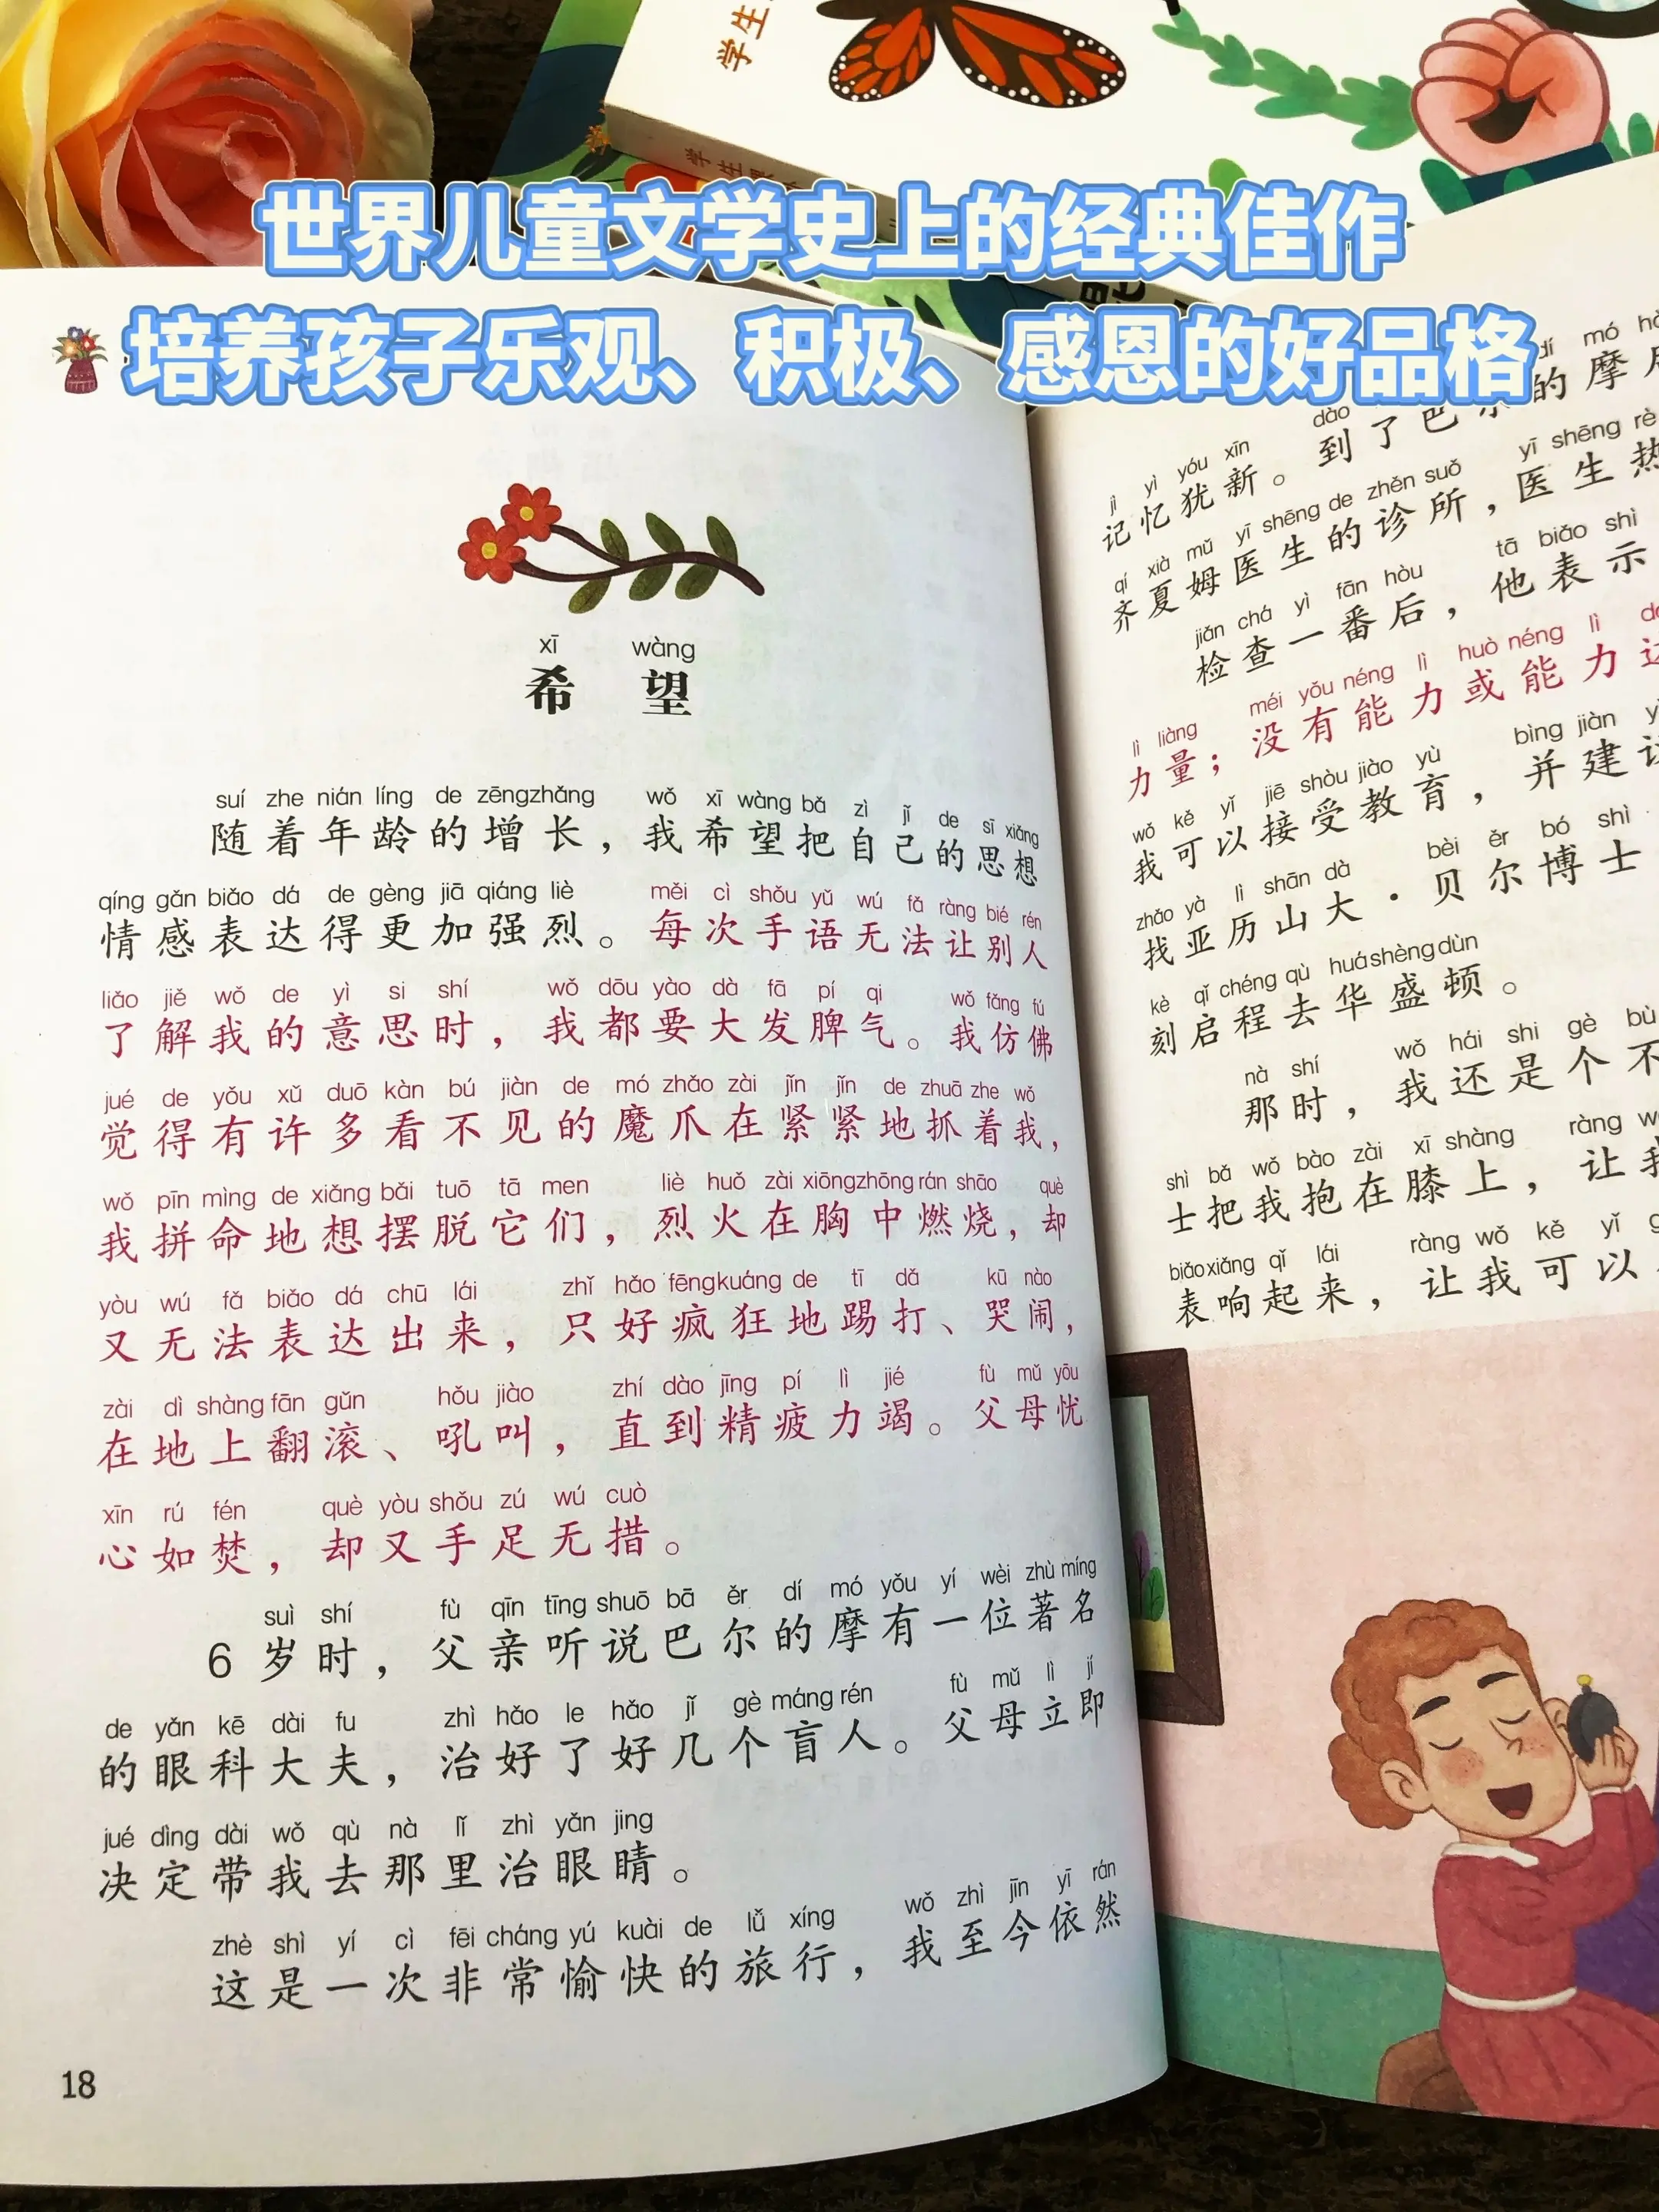 学生
学生
世界儿童文学史上的经典佳作
培养孩子乐观、积极、感恩的好品格
xī wàng
希望
suí zhe nián líng de zēngzhǎng wǒ xī wàng bǎ zì jǐ de sī xiǎng
随着年龄的增长，我希望把自己的思想
qíng gǎn biǎo dá de gèng jiā qiáng liè měi cì shǒu yǔ wú fǎ ràng bié rén
情感表达得更加强烈。每次手语无法让别人
liǎo jiě wǒ de yì si shí wǒ dōu yào dà fā pí qi wǒ fǎng fú
了解我的意思时，我都要大发脾气。我仿佛
jué de yǒu xǔ duō kàn bú jiàn de mó zhǎo zài jǐn jǐn de zhuā zhe wǒ
觉得有许多看不见的魔爪在紧紧地抓着我，
wǒ pīn mìng de xiǎng bǎi tuō tā men liè huǒ zài xiōngzhōng rán shāo què
我拼命地想摆脱它们，烈火在胸中燃烧，却
yòu wú fǎ biǎo dá chū lái zhǐ hǎo fēngkuáng de tī dǎ kū nào
又无法表达出来，只好疯狂地踢打、哭闹，
zài dì shàng fān gǔn hǒu jiào zhí dào jīng pí lì jié fù mǔ yōu
在地上翻滚、吼叫，直到精疲力竭。父母忧
xīn rú fén què yòu shǒu zú wú cuò
心如焚，却又手足无措。
suì shí fù qīn tīng shuō bā ěr dí mó yǒu yí wèi zhù míng
6岁时，父亲听说巴尔的摩有一位著名
de yǎn kē dài fu zhì hǎo le hǎo jǐ gè máng rén fù mǔ lì jí
的眼科大夫，治好了好几个盲人。父母立即
jué dìng dài wǒ qù nà lǐ zhì yǎn jing
决定带我去那里治眼睛。
zhè shì yí cì fēi cháng yú kuài de lǚ xíng wǒ zhì jīn yī rán
这是一次非常愉快的旅行，我至今依然
18
dào dí mó
jì yì yóu xīn
记忆犹新。到了巴尔的摩
qí xià mǔ yī shēng de zhěn suǒ yī shēng rè
齐夏姆医生的诊所，医生热
jiǎn chá yì fān hòu tā biǎo shì
检查一番后，他表示
lì liàng méi yǒu néng lì huò néng lì
力量；没有能力或能力
wǒ kě yǐ jiē shòu jiào yù bìng jiàn
我可以接受教育，并建
zhǎo yà lì shān dà bèi ěr bó shì
找亚历山大·贝尔博士
kè qǐ chéng qù huáshèngdùn
刻启程去华盛顿。
nà shí wǒ hái shi gè bù
那时，我还是个不
shì bǎ wǒ bào zài xī shàng ràng
士把我抱在膝上，让
biǎoxiǎng qǐ lái ràng wǒ kě yǐ
表响起来，让我可以